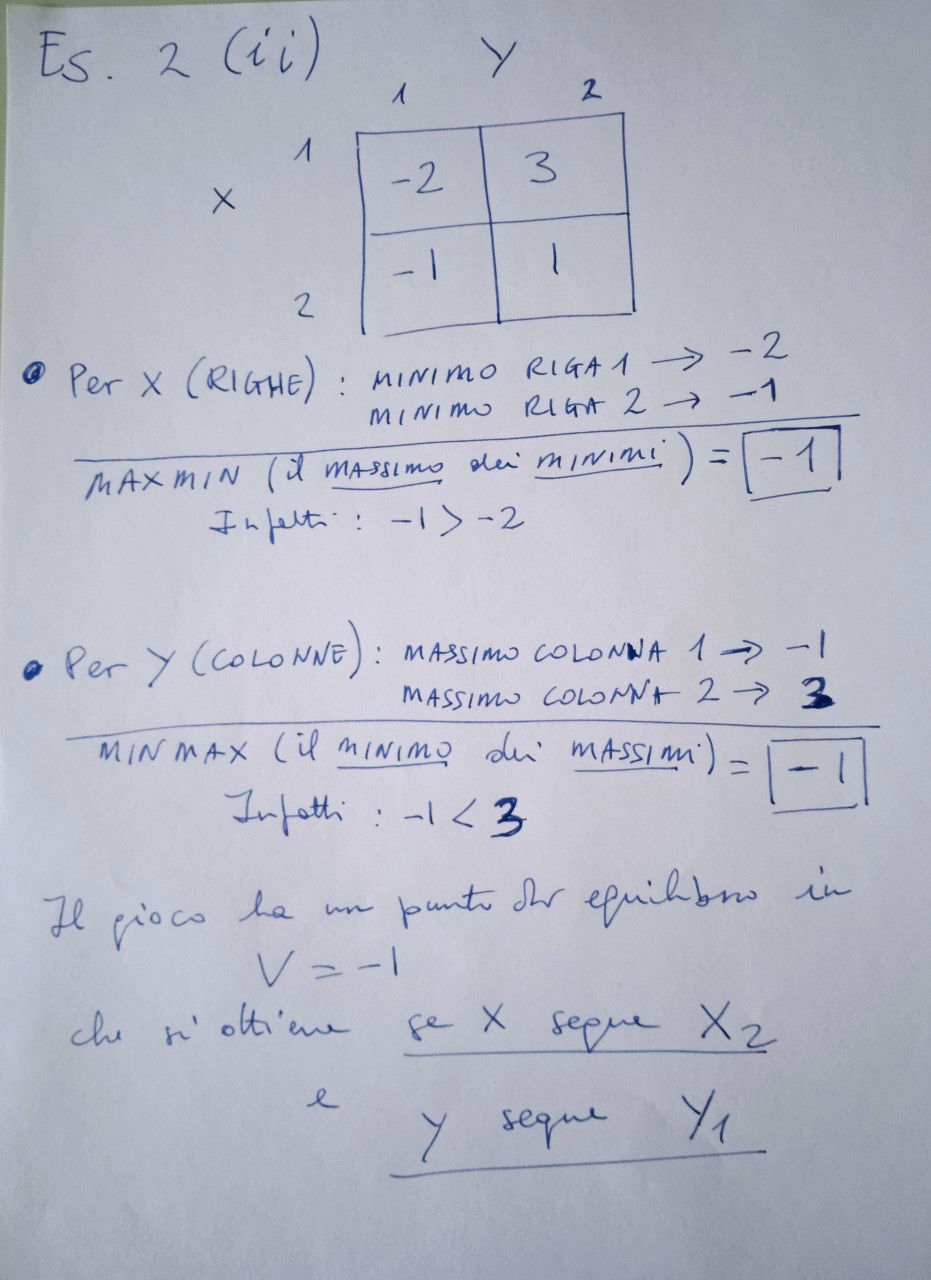 Es. 2 (ii)
Y
1 2
1 -2 3
X
2 -1 1
• Per X (RIGHE) : MINIMO RIGA 1 → -2
MINIMO RIGA 2 → -1
MAXMIN (il MASSIMO dei MINIMI) = -1
Infatti : -1 > -2
• Per Y (COLONNE) : MASSIMO COLONNA 1 → -1
MASSIMO COLONNA 2 → 3
MINMAX (il MINIMO dei MASSIMI) = -1
Infatti : -1 < 3
Il gioco ha un punto di equilibrio in
V = -1
che si ottiene se X segue X2
e
Y segue Y1